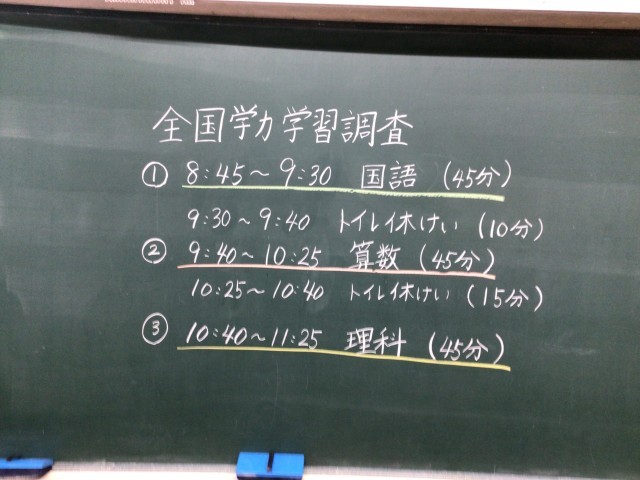 全国学力学習調査
① 8:45〜9:30 国語 (45分)
9:30〜9:40 トイレ休けい (10分)
② 9:40〜10:25 算数 (45分)
10:25〜10:40 トイレ休けい (15分)
③ 10:40〜11:25 理科 (45分)